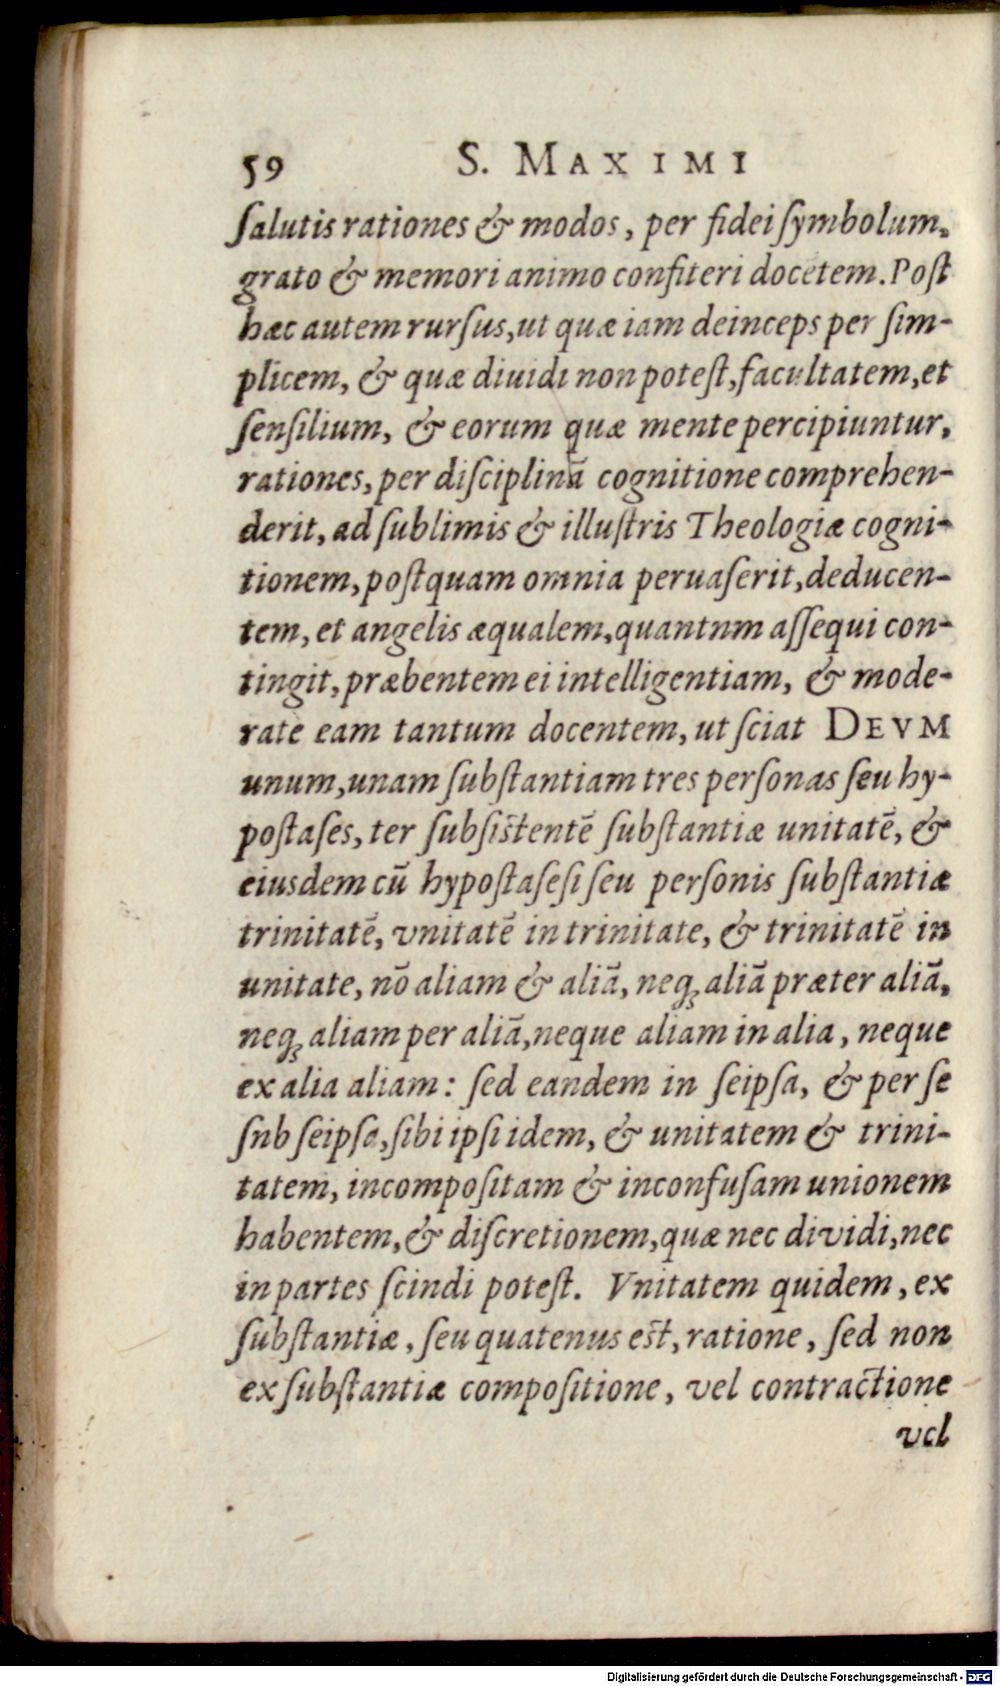 59 S. MAXIMI
ſalutis rationes & modos, per fidei ſymbolum,
grato & memori animo confiteri docẽtem. Poſt
hæc autem rurſus, ut quæ iam deinceps per ſim-
plicem, & quæ diuidi non poteſt, facultatem, et
ſenſilium, & eorum quæ mente percipiuntur,
rationes, per diſciplinã cognitione comprehen-
derit, ad ſublimis & illuſtris Theologiæ cogni-
tionem, poſtquam omnia peruaſerit, deducen-
tem, et angelis æqualem, quantnm aſſequi con-
tingit, præbentem ei intelligentiam, & mode-
rate eam tantum docentem, ut ſciat DEVM
unum, unam ſubſtantiam tres perſonas ſeu hy-
poſtaſes, ter ſubſiſtentẽ ſubſtantiæ unitatẽ, &
eiusdem cũ hypoſtaſeſi ſeu perſonis ſubſtantiæ
trinitatẽ, vnitatẽ in trinitate, & trinitatẽ in
unitate, nõ aliam & aliã, neq; aliã præter aliã,
neq; aliam per aliã, neque aliam in alia, neque
ex alia aliam: ſed eandem in ſeipſa, & per ſe
ſnb ſeipſa, ſibi ipſi idem, & unitatem & trini-
tatem, incompoſitam & inconfuſam unionem
habentem, & diſcretionem, quæ nec dividi, nec
in partes ſcindi poteſt. Vnitatem quidem, ex
ſubſtantiæ, ſeu quatenus eſt, ratione, ſed non
ex ſubſtantiæ compoſitione, vel contractione
vel
Digitalisierung gefördert durch die Deutsche Forschungsgemeinschaft - DFG